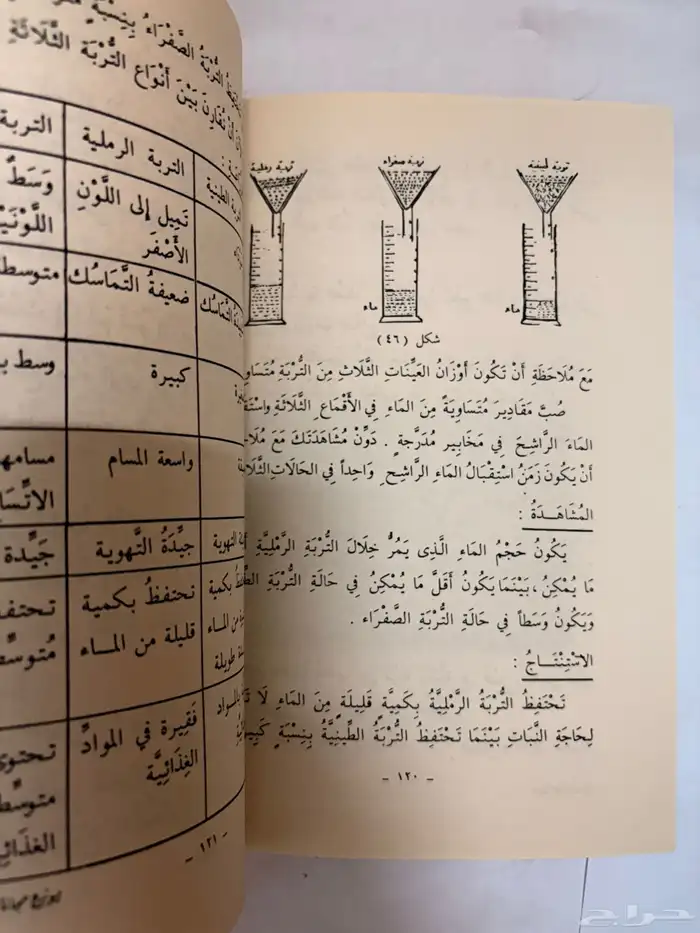 تربة طينية
تربة صفراء
تربة رملية
ماء
ماء
شكل (٤٦)
مَعَ مُلَاحَظَةِ أَنْ تَكُونَ أَوْزَانُ العَيِّنَاتِ الثَّلَاثِ مِنَ التُّرْبَةِ
صُبَّ مَقَادِيرَ مُتَسَاوِيَةً مِنَ المَاءِ فِي الأَقْمَاعِ الثَّلَاثَةِ
المَاءَ الرَّاشِحَ فِي مَخَابِيرَ مُدَرَّجَةٍ . دَوِّنْ مُشَاهَدَتَكَ مَعَ
أَنْ يَكُونَ زَمَنُ اسْتِقْبَالِ المَاءِ الرَّاشِحِ وَاحِداً فِي الحَالَاتِ الثَّلَاثَةِ
المُشَاهَدَةُ :
يَكُونُ حَجْمُ المَاءِ الَّذِى يَمُرُّ خِلَالَ التُّرْبَةِ الرَّمْلِيَّةِ
مَا يُمْكِنُ ، بَيْنَمَا يَكُونُ أَقَلَّ مَا يُمْكِنُ فِي حَالَةِ التُّرْبَةِ
وَيَكُونُ وَسَطاً فِي حَالَةِ التُّرْبَةِ الصَّفْرَاء .
الاسْتِنْتَاجُ :
تَحْتَفِظُ التُّرْبَةُ الرَّمْلِيَّةُ بِكَمِيَّةٍ قَلِيلَةٍ مِنَ المَاءِ لَا
لِحَاجَةِ النَّبَاتِ بَيْنَمَا تَحْتَفِظُ التُّرْبَةُ الطِّينِيَّةُ بِنِسْبَةٍ كَبِيرَةٍ
- ١٢٠ -
التُّرْبَةُ الصَّفْرَاءُ بِنِسْبَةٍ
أَنْ تُقَارِنَ بَيْنَ أَنْوَاعِ التُّرْبَةِ الثَّلَاثَةِ
الطينية
التربة الرملية
التربة
تَمِيل إلى اللَّوْنِ
الأَصْفَر
وَسَطٌ
ضعيفةُ التَّمَاسُك
متوسط
كبيرة
وسط
واسعة المسام
جيِّدَةُ التَّهوية
جَيِّدة
تحتفظُ بكمية
قليلة من المـاء
طويلة
فَقِيرة في المَوادِّ
الغِذَائِيَّة
- ١٢١ -
حراج